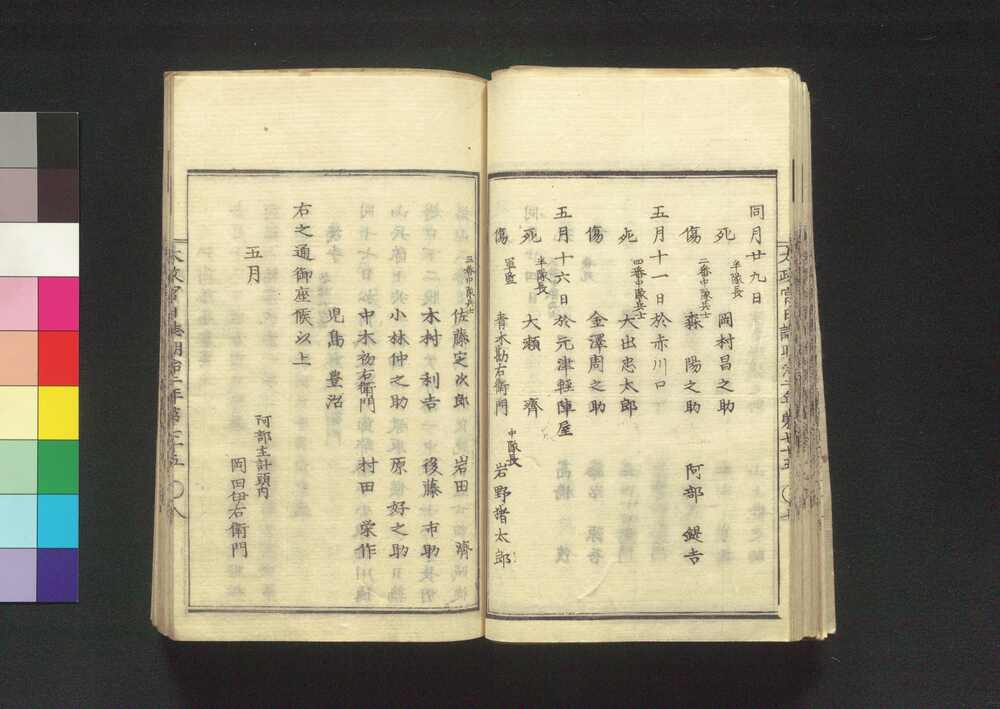 同月廿九日
死 半隊長 岡村昌之助
傷 二番中隊兵士 森陽之助 阿部鍉吉
五月十一日於赤川口
死 四番中隊兵士 大出忠太郎
傷 金澤周之助
五月十六日於元津軽陣屋
死 半隊長 大瀬齊
傷 軍監 青木勘右衛門 中隊長 岩野猪太郎
三番中隊兵士 佐藤定次郎 岩田濟
木村利吉 後藤市助
小林仲之助 原好之助
中木初右衛門 村田栄作
児島豊治
右之通御座候以上
五月
阿部主計頭内
岡田伊右衛門
太政官日誌明治二年第七十五